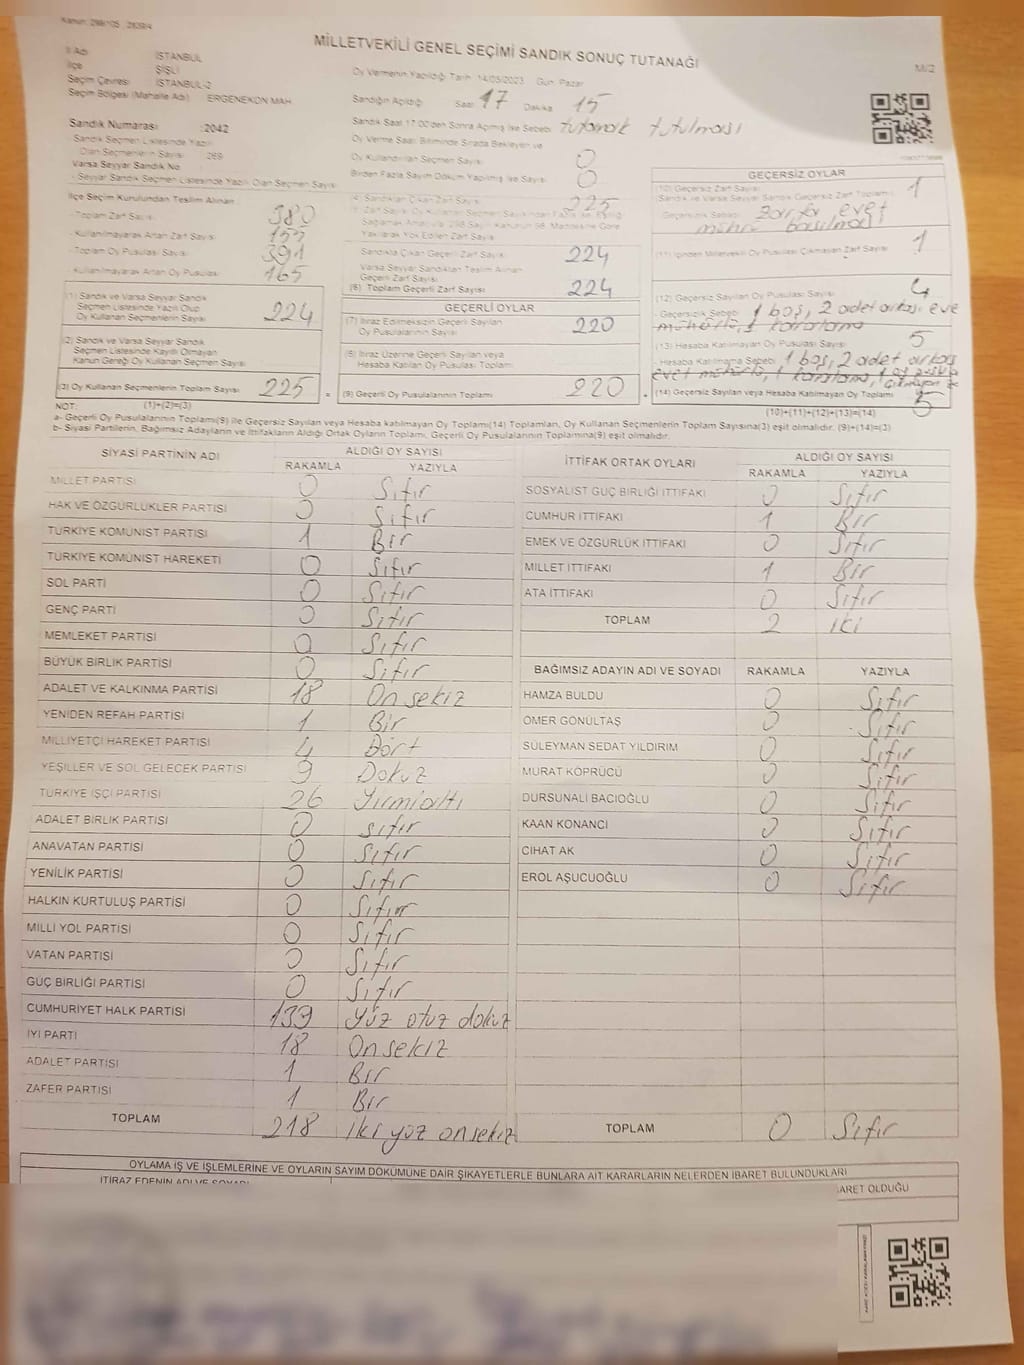 Kanun: 298/105 , 2839/4
MİLLETVEKİLİ GENEL SEÇİMİ SANDIK SONUÇ TUTANAĞI
M/2
İl Adı : İSTANBUL
İlçe : ŞİŞLİ
Seçim Çevresi : İSTANBUL-2
Seçim Bölgesi (Mahalle Adı) : ERGENEKON MAH
Sandık Numarası : 2042
Sandık Seçmen Listesinde Yazılı
Olan Seçmenlerin Sayısı : 269
Varsa Seyyar Sandık No
- Seyyar Sandık Seçmen Listesinde Yazılı Olan Seçmen Sayısı
Oy Vermenin Yapıldığı Tarih: 14/05/2023 Gün: Pazar
Sandığın Açıldığı Saat 17 Dakika 15
Sandık Saat 17:00'den Sonra Açılmış İse Sebebi: tutanak tutulması
Oy Verme Saati Bitiminde Sırada Bekleyen ve
Oy Kullandırılan Seçmen Sayısı : 0
Birden Fazla Sayım Döküm Yapılmış İse Sayısı : 0
İlçe Seçim Kurulundan Teslim Alınan
- Toplam Zarf Sayısı : 380
- Kullanılmayarak Artan Zarf Sayısı : 155
- Toplam Oy Pusulası Sayısı : 391
- Kullanılmayarak Artan Oy Pusulası : 165
(1) Sandık ve Varsa Seyyar Sandık
Seçmen Listesinde Yazılı Olup
Oy Kullanan Seçmenlerin Sayısı : 224
(2) Sandık ve Varsa Seyyar Sandık
Seçmen Listesinde Kayıtlı Olmayan
Kanun Gereği Oy Kullanan Seçmen Sayısı :
(3) Oy Kullanan Seçmenlerin Toplam Sayısı : 225
(1)+(2)=(3)
(4) Sandıktan Çıkan Zarf Sayısı : 225
Yakılarak Yok Edilen Zarf Sayısı
Sandıkta Çıkan Geçerli Zarf Sayısı : 224
Varsa Seyyar Sandıktan Teslim Alınan
Geçerli Zarf Sayısı
(6) Toplam Geçerli Zarf Sayısı : 224
GEÇERLİ OYLAR
(7) İtiraz Edilmeksizin Geçerli Sayılan
Oy Pusulalarının Sayısı : 220
(8) İtiraz Üzerine Geçerli Sayılan veya
Hesaba Katılan Oy Pusulası Toplamı
(9) Geçerli Oy Pusulalarının Toplamı : 220
GEÇERSİZ OYLAR
(10) Geçersiz Zarf Sayısı
(Sandık ve Varsa Seyyar Sandık Geçersiz Zarf Toplamı) : 1
Geçersizlik Sebebi : Zarfa evet
mührü basılması
(11) İçinden Milletvekili Oy Pusulası Çıkmayan Zarf Sayısı : 1
(12) Geçersiz Sayılan Oy Pusulası Sayısı : 4
- Geçersizlik Sebebi : 1 boş, 2 adet arkası eve
mühürlü, 1 karalama
(13) Hesaba Katılmayan Oy Pusulası Sayısı : 5
- Hesaba Katılmama Sebebi : 1 boş, 2 adet arkası
evet mühürlü, 1 karalama, 1 oy pusula
(14) Geçersiz Sayılan veya Hesaba Katılmayan Oy Toplamı : 5
(10)+(11)+(12)+(13)=(14)
NOT:
a- Geçerli Oy Pusulalarının Toplamı(9) ile Geçersiz Sayılan veya Hesaba katılmayan Oy Toplamı(14) Toplamları, Oy Kullanan Seçmenlerin Toplam Sayısına(3) eşit olmalıdır. (9)+(14)=(3)
b- Siyasi Partilerin, Bağımsız Adayların ve İttifakların Aldığı Ortak Oyların Toplamı, Geçerli Oy Pusulalarının Toplamına(9) eşit olmalıdır.
SİYASİ PARTİNİN ADI ALDIĞI OY SAYISI
RAKAMLA YAZIYLA
MİLLET PARTİSİ 0 Sıfır
HAK VE ÖZGÜRLÜKLER PARTİSİ 0 Sıfır
TÜRKİYE KOMÜNİST PARTİSİ 1 Bir
TÜRKİYE KOMÜNİST HAREKETİ 0 Sıfır
SOL PARTİ 0 Sıfır
GENÇ PARTİ 0 Sıfır
MEMLEKET PARTİSİ 0 Sıfır
BÜYÜK BİRLİK PARTİSİ 0 Sıfır
ADALET VE KALKINMA PARTİSİ 18 On sekiz
YENİDEN REFAH PARTİSİ 1 Bir
MİLLİYETÇİ HAREKET PARTİSİ 4 Dört
YEŞİLLER VE SOL GELECEK PARTİSİ 9 Dokuz
TÜRKİYE İŞÇİ PARTİSİ 26 Yirmialtı
ADALET BİRLİK PARTİSİ 0 sıfır
ANAVATAN PARTİSİ 0 Sıfır
YENİLİK PARTİSİ 0 Sıfır
HALKIN KURTULUŞ PARTİSİ 0 Sıfır
MİLLİ YOL PARTİSİ 0 Sıfır
VATAN PARTİSİ 0 Sıfır
GÜÇ BİRLİĞİ PARTİSİ 0 Sıfır
CUMHURİYET HALK PARTİSİ 139 Yüz otuz dokuz
İYİ PARTİ 18 On sekiz
ADALET PARTİSİ 1 Bir
ZAFER PARTİSİ 1 Bir
TOPLAM 218 İki yüz onsekiz
İTTİFAK ORTAK OYLARI ALDIĞI OY SAYISI
RAKAMLA YAZIYLA
SOSYALİST GÜÇ BİRLİĞİ İTTİFAKI 0 Sıfır
CUMHUR İTTİFAKI 1 Bir
EMEK VE ÖZGÜRLÜK İTTİFAKI 0 Sıfır
MİLLET İTTİFAKI 1 Bir
ATA İTTİFAKI 0 Sıfır
TOPLAM 2 iki
BAĞIMSIZ ADAYIN ADI VE SOYADI RAKAMLA YAZIYLA
HAMZA BULDU 0 Sıfır
ÖMER GÖNÜLTAŞ 0 Sıfır
SÜLEYMAN SEDAT YILDIRIM 0 Sıfır
MURAT KÖPRÜCÜ 0 Sıfır
DURSUNALİ BACIOĞLU 0 Sıfır
KAAN KONANCI 0 Sıfır
CİHAT AK 0 Sıfır
EROL AŞUCUOĞLU 0 Sıfır
TOPLAM 0 Sıfır
OYLAMA İŞ VE İŞLEMLERİNE VE OYLARIN SAYIM DÖKÜMÜNE DAİR ŞİKAYETLERLE BUNLARA AİT KARARLARIN NELERDEN İBARET BULUNDUKLARI
İTİRAZ EDENİN ADI VE SOYADI
BARET OLDUĞU